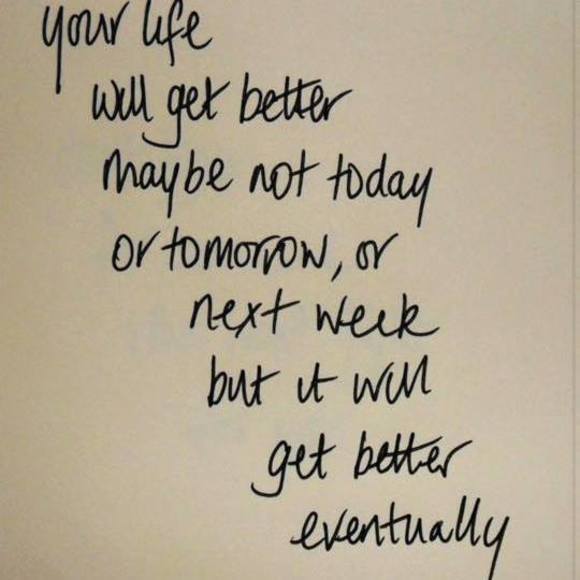 your life
will get better
maybe not today
or tomorrow, or
next week
but it will
get better
eventually